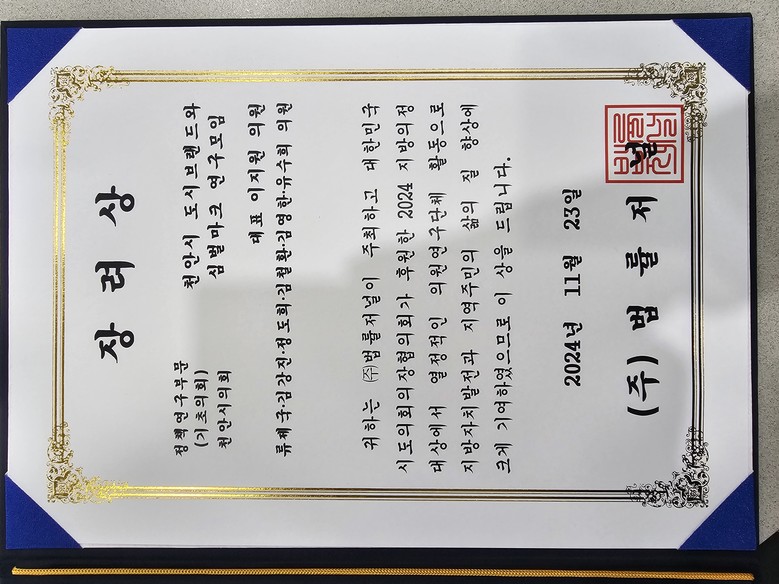 장 려 상
정책연구부문
(기초의회)
천안시의회
천안시 도시브랜드와
심벌마크 연구모임
대표 이지원 의원
류제국·김강진·정도희·김철환·김영한·유수희 의원
귀하는 ㈜법률저널이 주최하고 대한민국
시도의회의장협의회가 후원한 2024 지방의정
대상에서 열정적인 의원연구단체 활동으로
지방자치발전과 지역주민의 삶의 질 향상에
크게 기여하였으므로 이 상을 드립니다.
2024년 11월 23일
(주) 법 률 저 널
법률저널